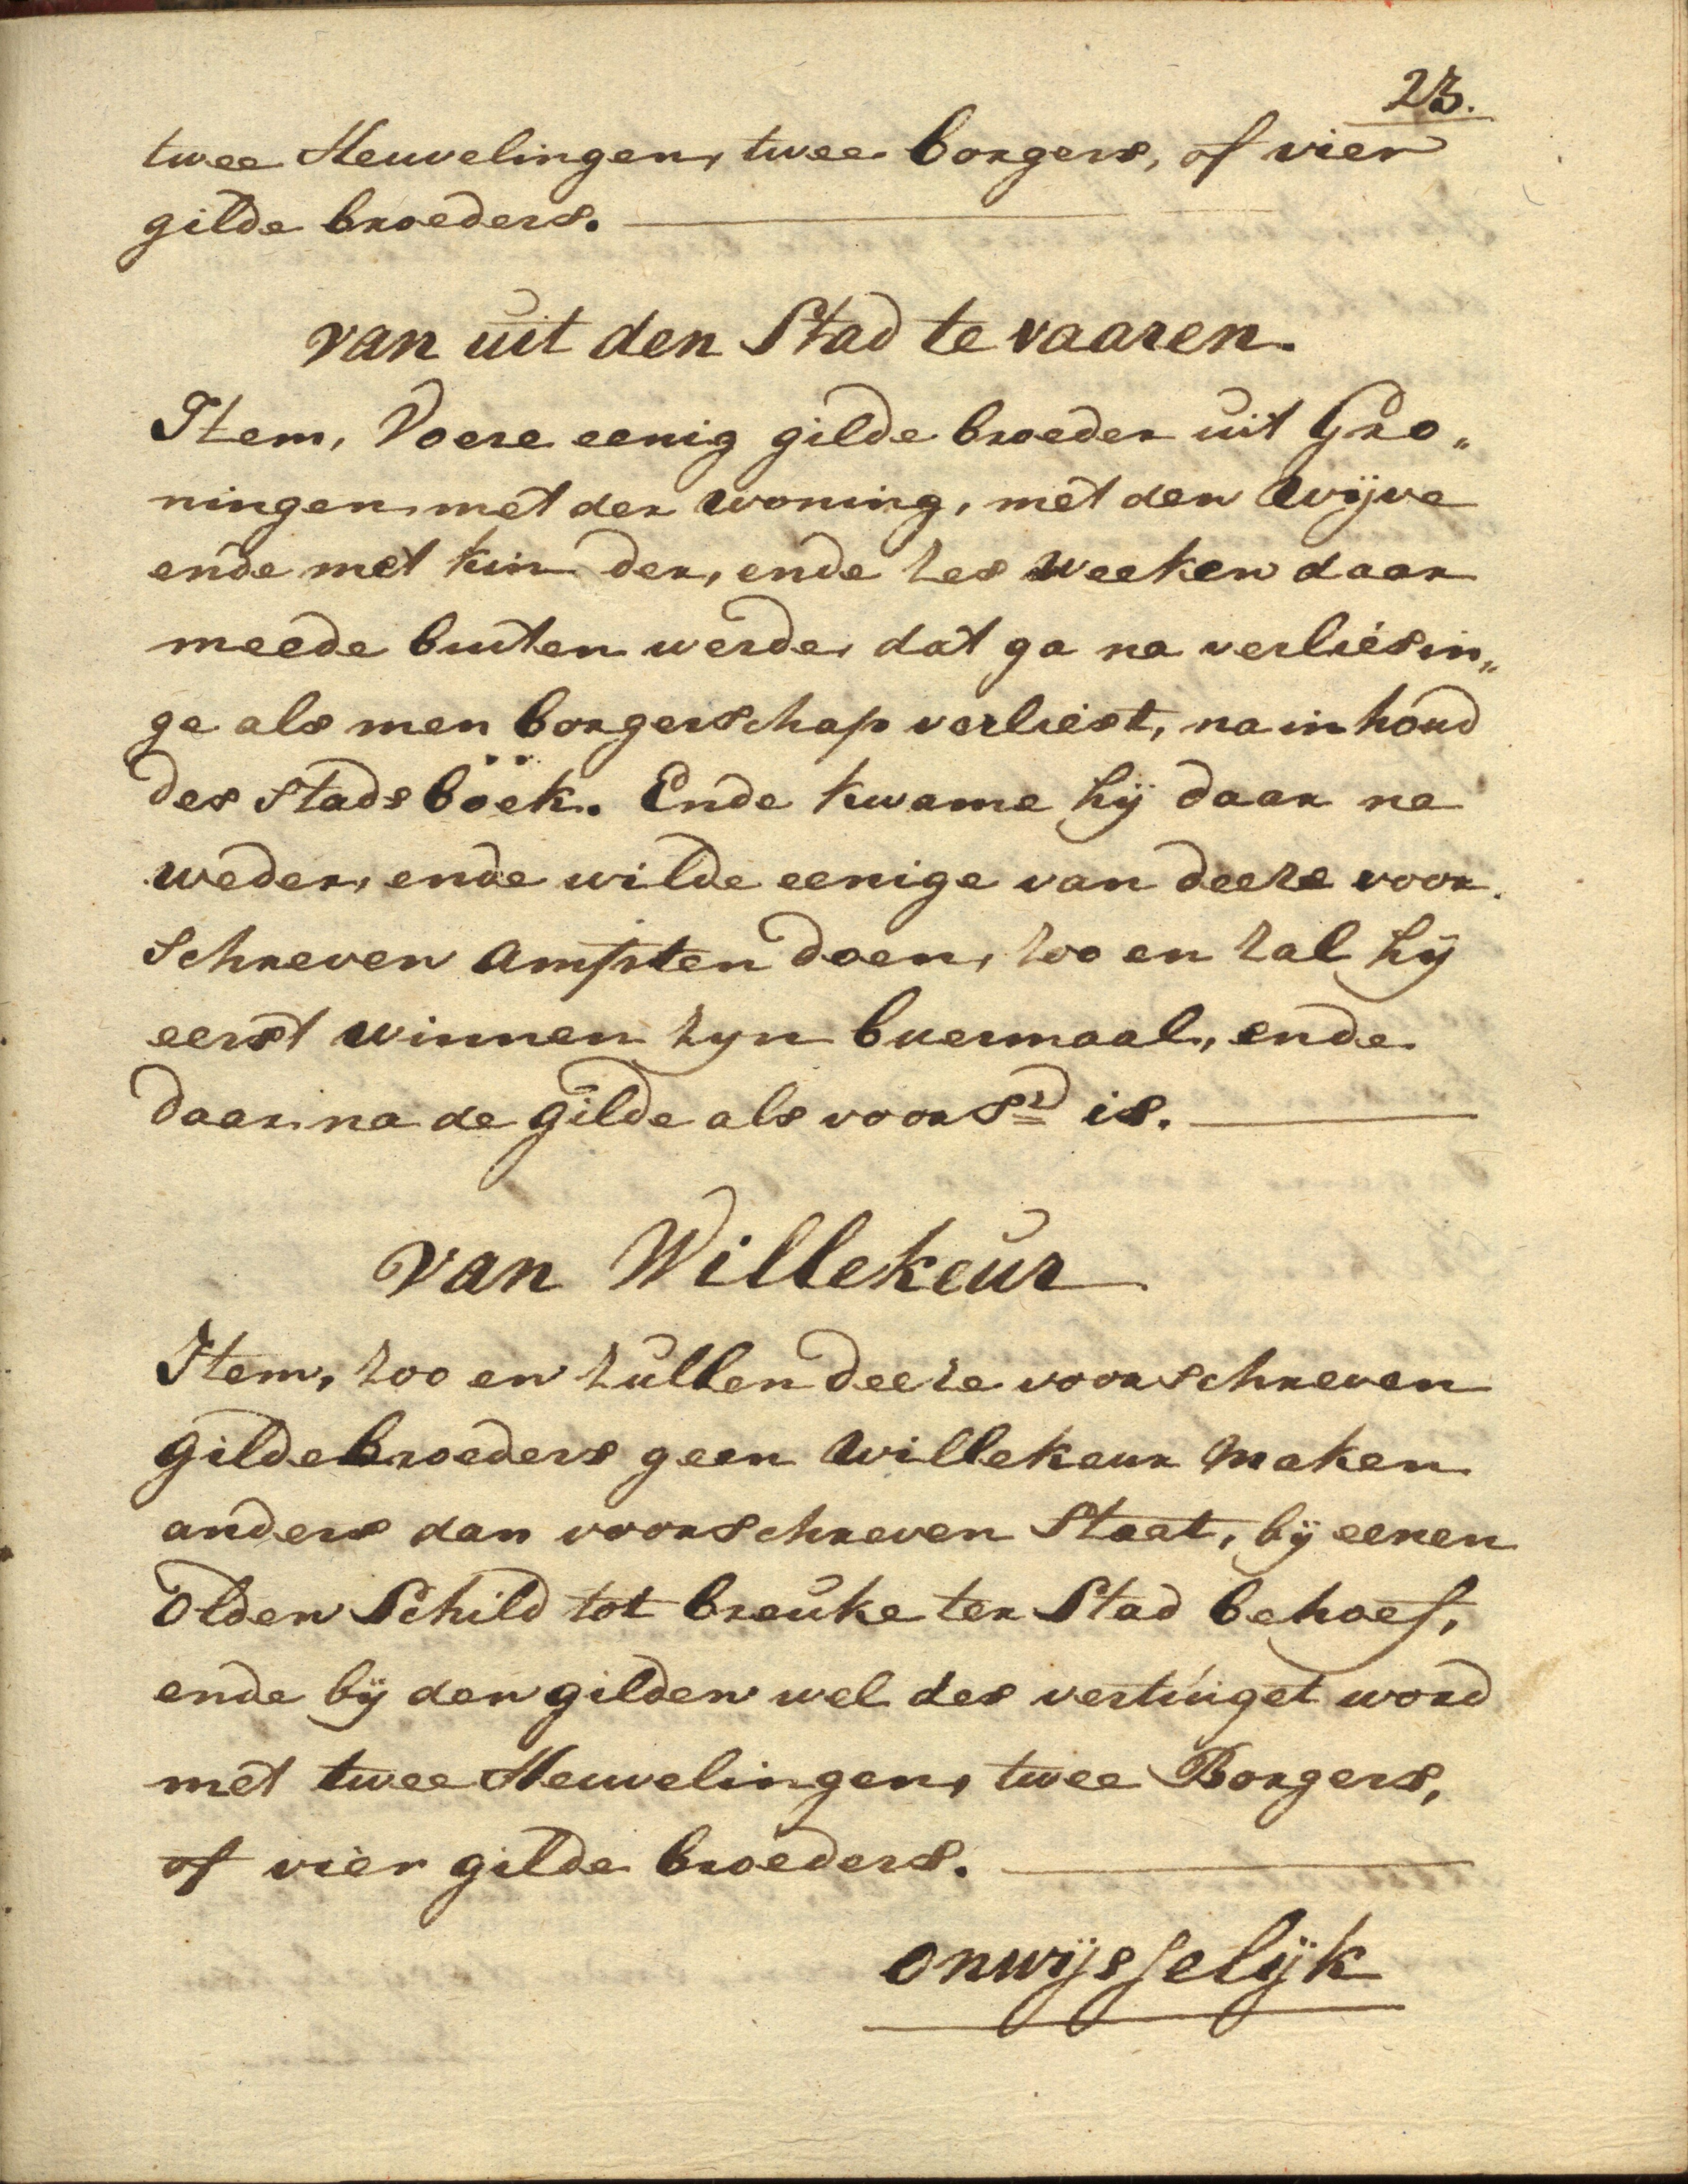 23.
twee Heuvelingen, twee borgers, of vier
gilde broeders.
van uit den Stad te vaaren.
Item, Voere eenig gilde broeder uit Gro„
ningen, met der woning, met den Wijve
ende met kin der, ende zes weeken daar
meede buiten werde, dat ga na verliesin„
ge als men borgerschap verliest, na inhoud
des stads böek. Ende kwame hij daar na
weder, ende wilde eenige van deeze voor
schreven ampten doen, zoo en zal hij
eerst winnen zyn buermaal, ende
daar na de gilde als voorsd is.
van Willekeur
Item, zoo en zullen deeze voorschreven
gildebroeders geen willekeur maken
anders dan voorschreven staet, bij eenen
olden Schild tot breuke ter Stad behoef,
ende bij den gilden wel des vertuiget word
met twee Heuvelingen, twee Borgers,
of vier gilde broeders.
onwijsselijk